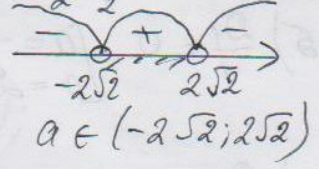 − + −
−2√2 2√2
a ∈ (−2√2; 2√2)